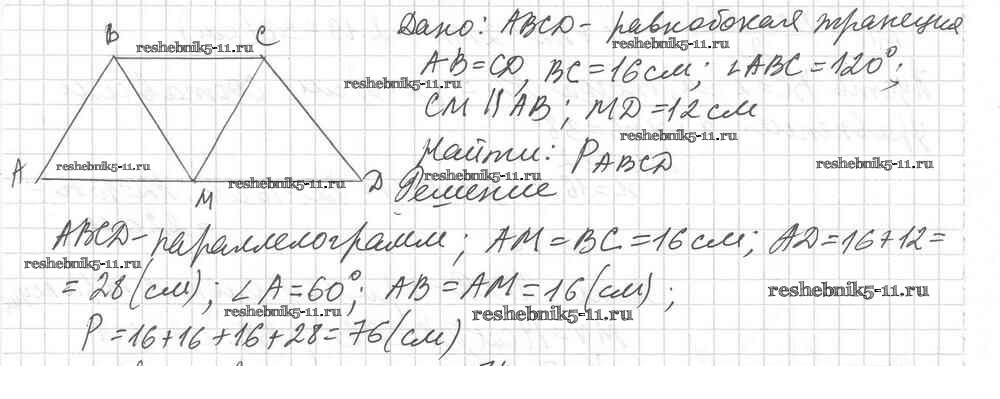 B C
A M D
Дано: ABCD - равнобокая трапеция
AB = CD, BC = 16 см; ∠ABC = 120°;
CM || AB; MD = 12 см
Найти: P ABCD
Решение
ABCD - параллелограмм; AM = BC = 16 см; AD = 16 + 12 =
= 28 (см); ∠A = 60°; AB = AM = 16 (см);
P = 16 + 16 + 16 + 28 = 76 (см)
reshebnik5-11.ru
reshebnik5-11.ru
reshebnik5-11.ru
reshebnik5-11.ru
reshebnik5-11.ru
reshebnik5-11.ru
reshebnik5-11.ru
reshebnik5-11.ru
reshebnik5-11.ru
reshebnik5-11.ru
reshebnik5-11.ru
reshebnik5-11.ru
reshebnik5-11.ru